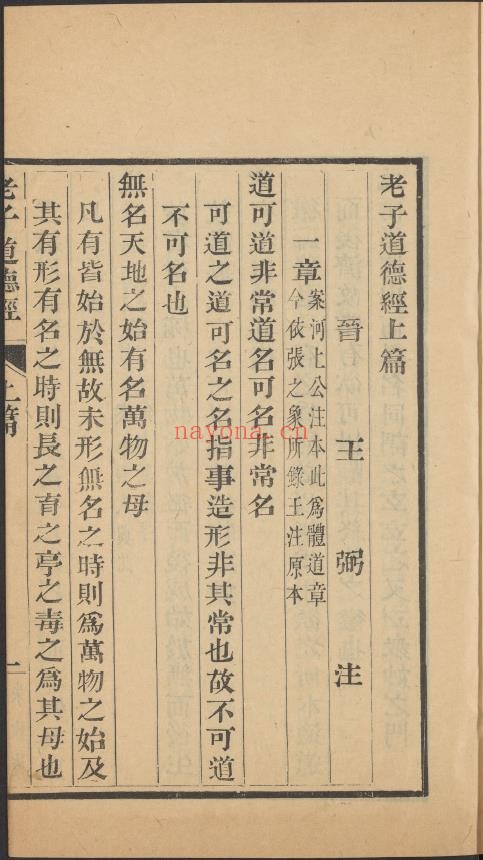 老子道德經上篇
晉 王 弼 注
一章 案河上公注本此爲體道章今依張之象所錄王注原本
道可道非常道名可名非常名
可道之道可名之名指事造形非其常也故不可道
不可名也
無名天地之始有名萬物之母
凡有皆始於無故未形無名之時則爲萬物之始及
其有形有名之時則長之育之亭之毒之爲其母也
老子道德經 上篇 一
nayona.cn